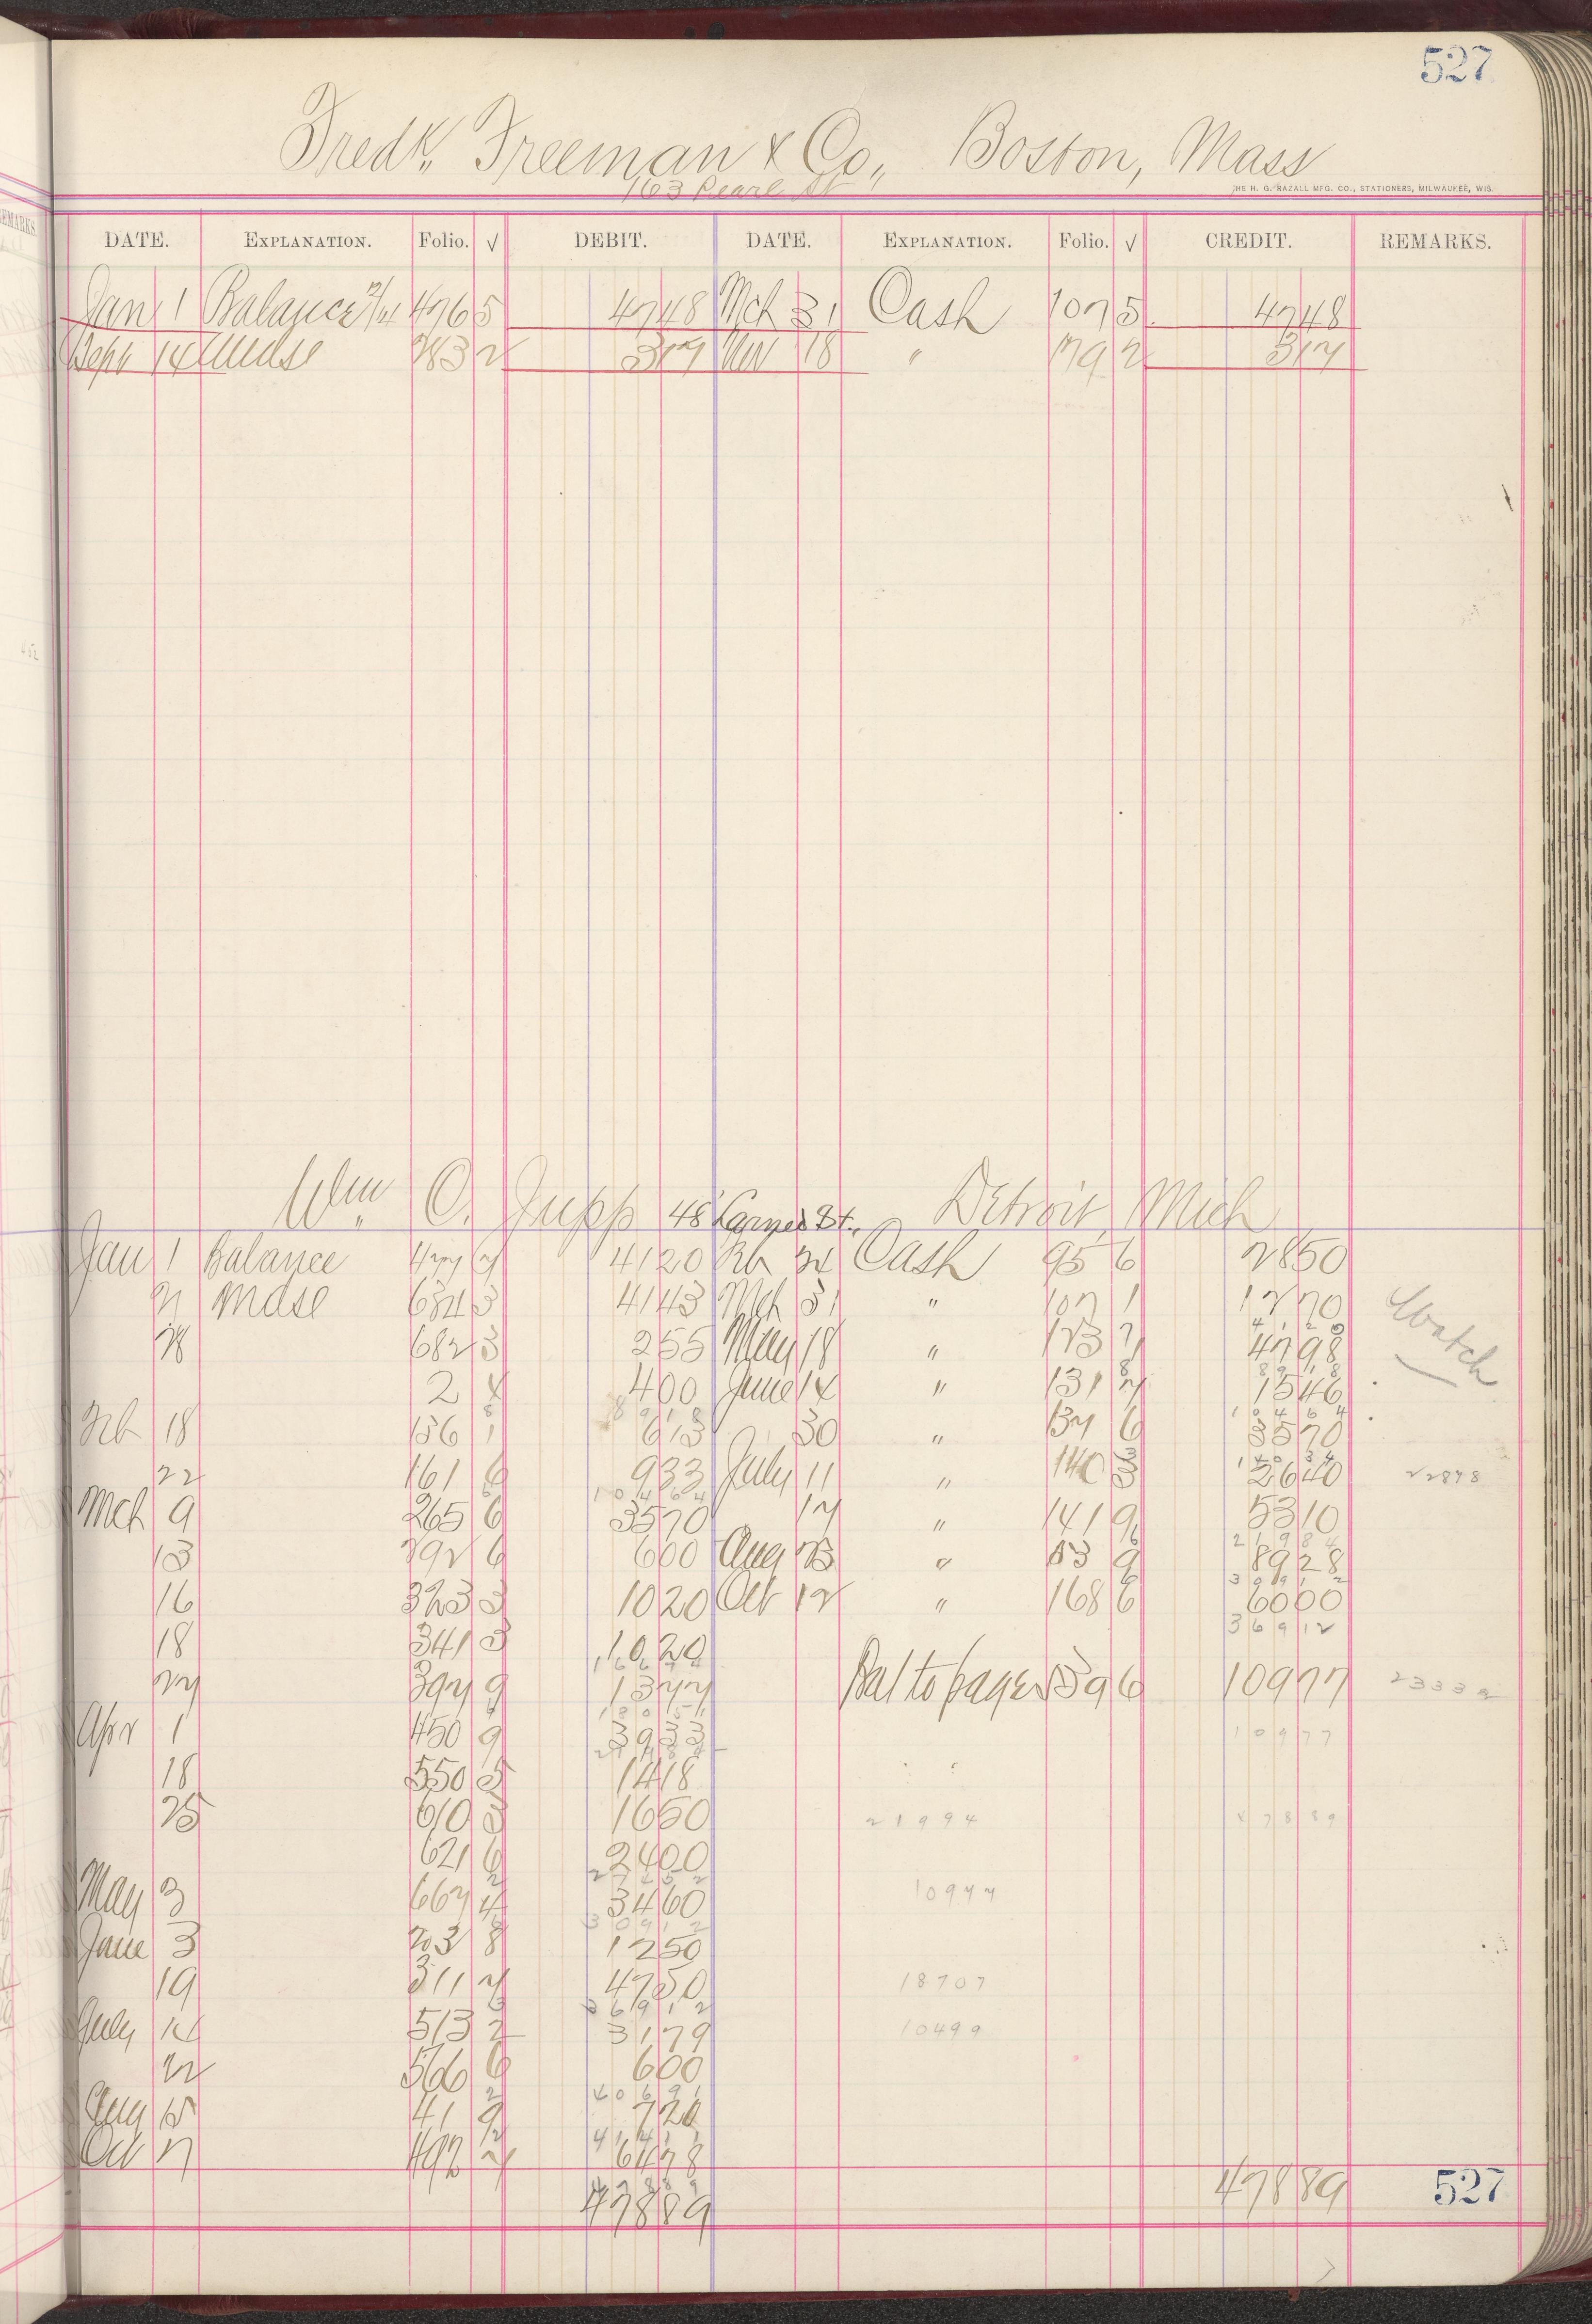 527
Fredk. Freeman & Co., Boston, Mass
163 Pearl St
THE H. G. RAZALL MFG. CO., STATIONERS, MILWAUKEE, WIS.
DATE. EXPLANATION. Folio. √ DEBIT. DATE. EXPLANATION. Folio. √ CREDIT. REMARKS.
Jan 1 Balance 476 5 4748 Mch 31 Cash 107 5 4748
Sept 14 Mdse 283 2 317 Nov 18 " 179 2 317
Wm C. Jupp 48 Larned St., Detroit, Mich
Jan 1 Balance 477 7 4120 Feb 24 Cash 95 6 2850
21 Mdse 634 3 4143 Mch 31 " 107 1 1270
28 682 3 255 May 18 " 123 7 4798 Watch
2 4 400 June 14 " 131 7 1546
Feb 18 136 1 613 30 " 137 6 3570
22 161 6 933 July 11 " 140 3 2640 22898
Mch 9 265 6 3570 17 " 141 9 5310
13 292 6 600 Aug 23 " 153 9 8928
16 323 3 1020 Oct 12 " 168 6 6000
36912
18 341 3 1020
27 397 9 1377 Bal to page 1396 10977 23332
Apr 1 450 9 3933 10977
18 550 5 1418
25 610 3 1650 21994 47889
621 6 2400
May 3 667 4 3460 10977
June 3 203 8 1250
19 311 7 4750 18707
July 14 513 2 3179 10499
22 566 6 600
Aug 15 41 9 720
Oct 7 492 7 6478
47889 47889 527